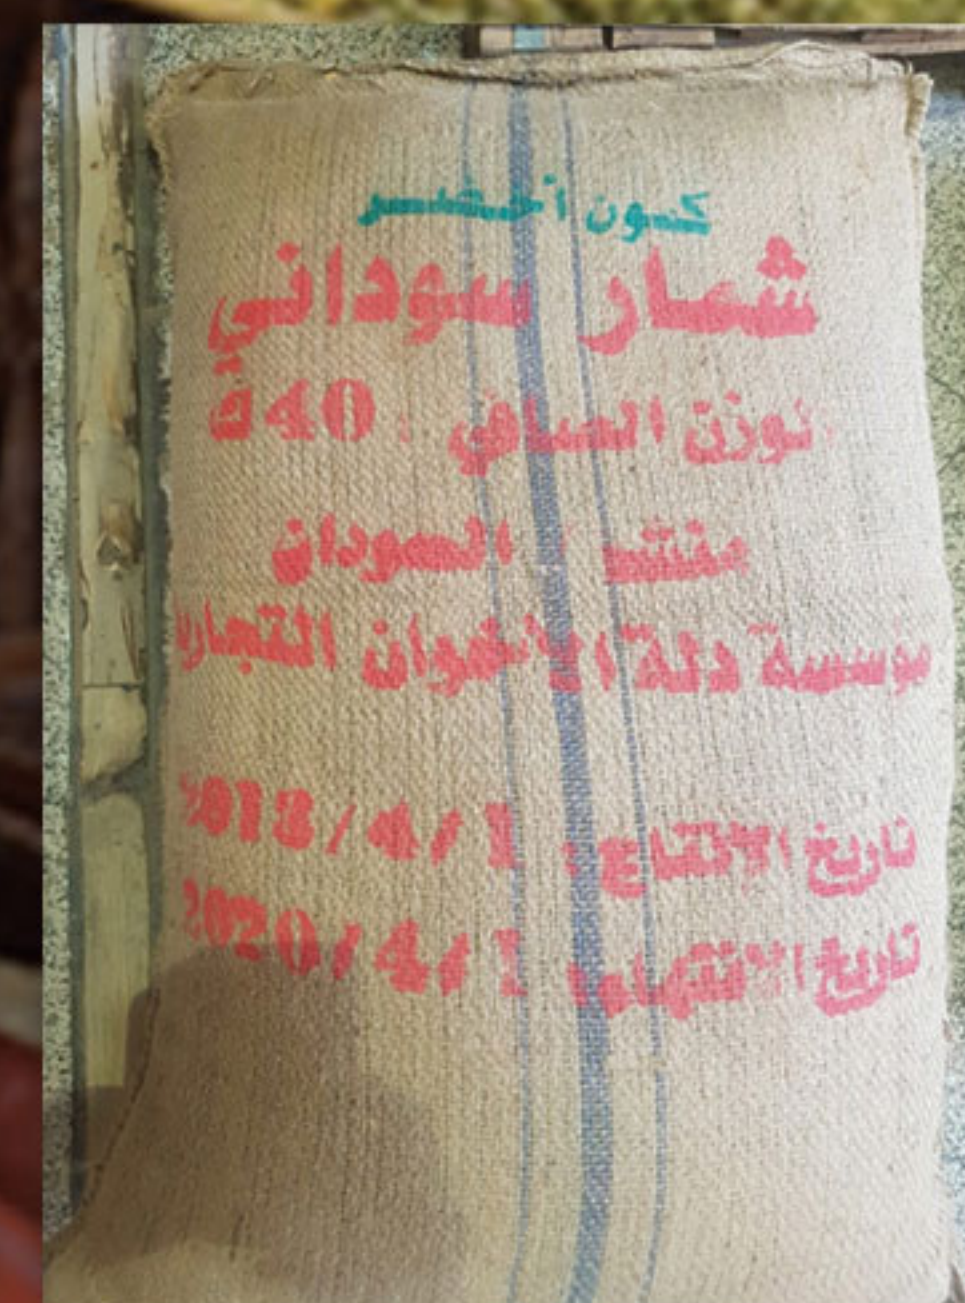 كمون أخضر
شمار سوداني
الوزن الصافي : 40ك
منشأ : السودان
مؤسسة دلة الاخوان التجارية
تاريخ الانتاج : 1/4/2018
تاريخ الانتهاء : 1/4/2020